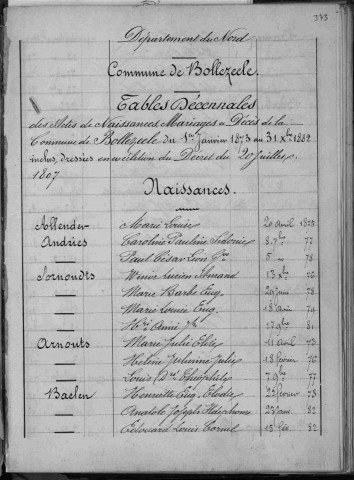 373
Département du Nord
Commune de Bollezeele.
Tables Décennales
des Actes de Naissances Mariages & Décès de la
Commune de Bollezeele du 1er Janvier 1873 au 31 Xbre 1882
inclus, dressées en exécution du Décret du 20 Juillet
1807
Naissances.
Allender Marie Louise 20 avril 1873
Andries Caroline Pauline Sidonie 8 7bre 77
— Paul César Léon 5 — 78
Wenoc Lucien Armand 13 xbre 76
— Marie Barbe Eug. 78
— Marie Louise Eug. 18 79
— 17 9bre 81
Arnouts Marie Julie 11 avril 73
— Hélène Julienne Julie 18 février 76
— Louis Théophile 7 9bre 77
Baelen Henriette Eug. Elodie 22 février 73
— Anatole Joseph Ildephonse 82
— Edouard Louis Cornil 15 82